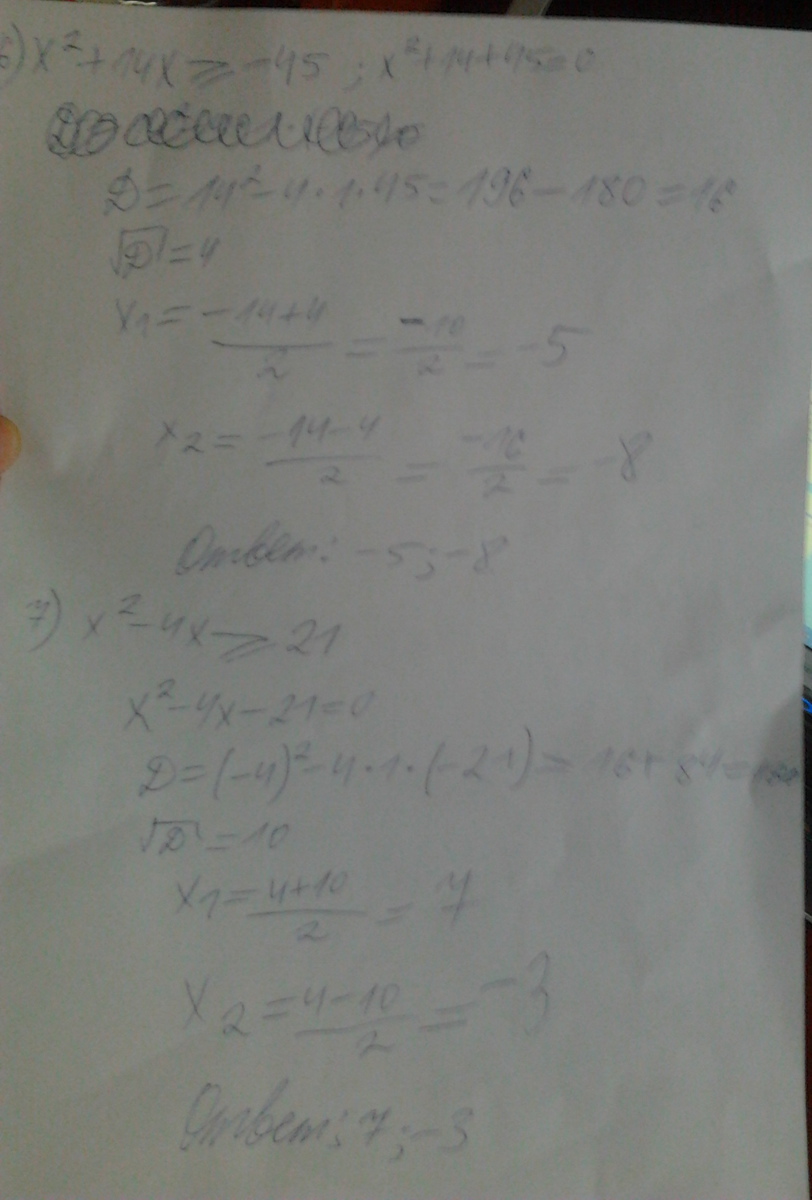 6) x² + 14x ≥ -45 ; x² + 14 + 45 = 0
D = 14² - 4 · 1 · 45 = 196 - 180 = 16
√D = 4
x₁ = (-14+4)/2 = -10/2 = -5
x₂ = (-14-4)/2 = -16/2 = -8
Ответ: -5 ; -8
7) x² - 4x ≥ 21
x² - 4x - 21 = 0
D = (-4)² - 4 · 1 · (-21) = 16 + 84 = 100
√D = 10
x₁ = (4+10)/2 = 7
x₂ = (4-10)/2 = -3
Ответ: 7 ; -3